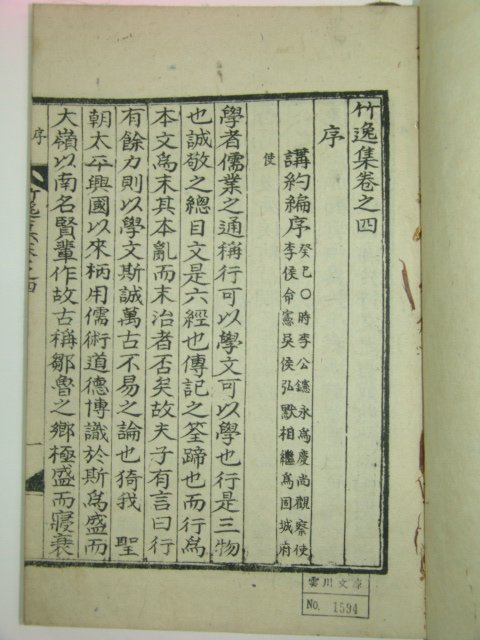 竹逸集卷之四
序
講約編序 癸巳○時李公鑢永爲慶尙觀察使
李侯命憲吳侯弘默相繼爲固城府
使
學者儒業之通稱行可以學文可以學也行是三物
也誠敬之總目文是六經也傳記之筌蹄也而行爲
本文爲末其本亂而末治者否矣故夫子有言曰行
有餘力則以學文斯誠萬古不易之論也猗我 聖
朝太平興國以來柄用儒術道德博識於斯爲盛而
大嶺以南名賢輩作故古稱鄒魯之鄕極盛而寢衰
序
竹逸集卷之四
雲川文庫
No. 1594